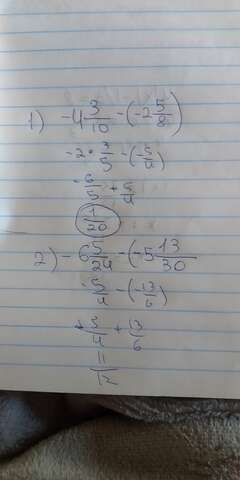 1) -4 3/10 - (-2 5/8)
-2 * 3/5 - (-5/4)
-6/5 + 5/4
1/20
2) -6 5/24 - (-5 13/30
-5/4 - (-13/6)
-5/4 + 13/6
11/12